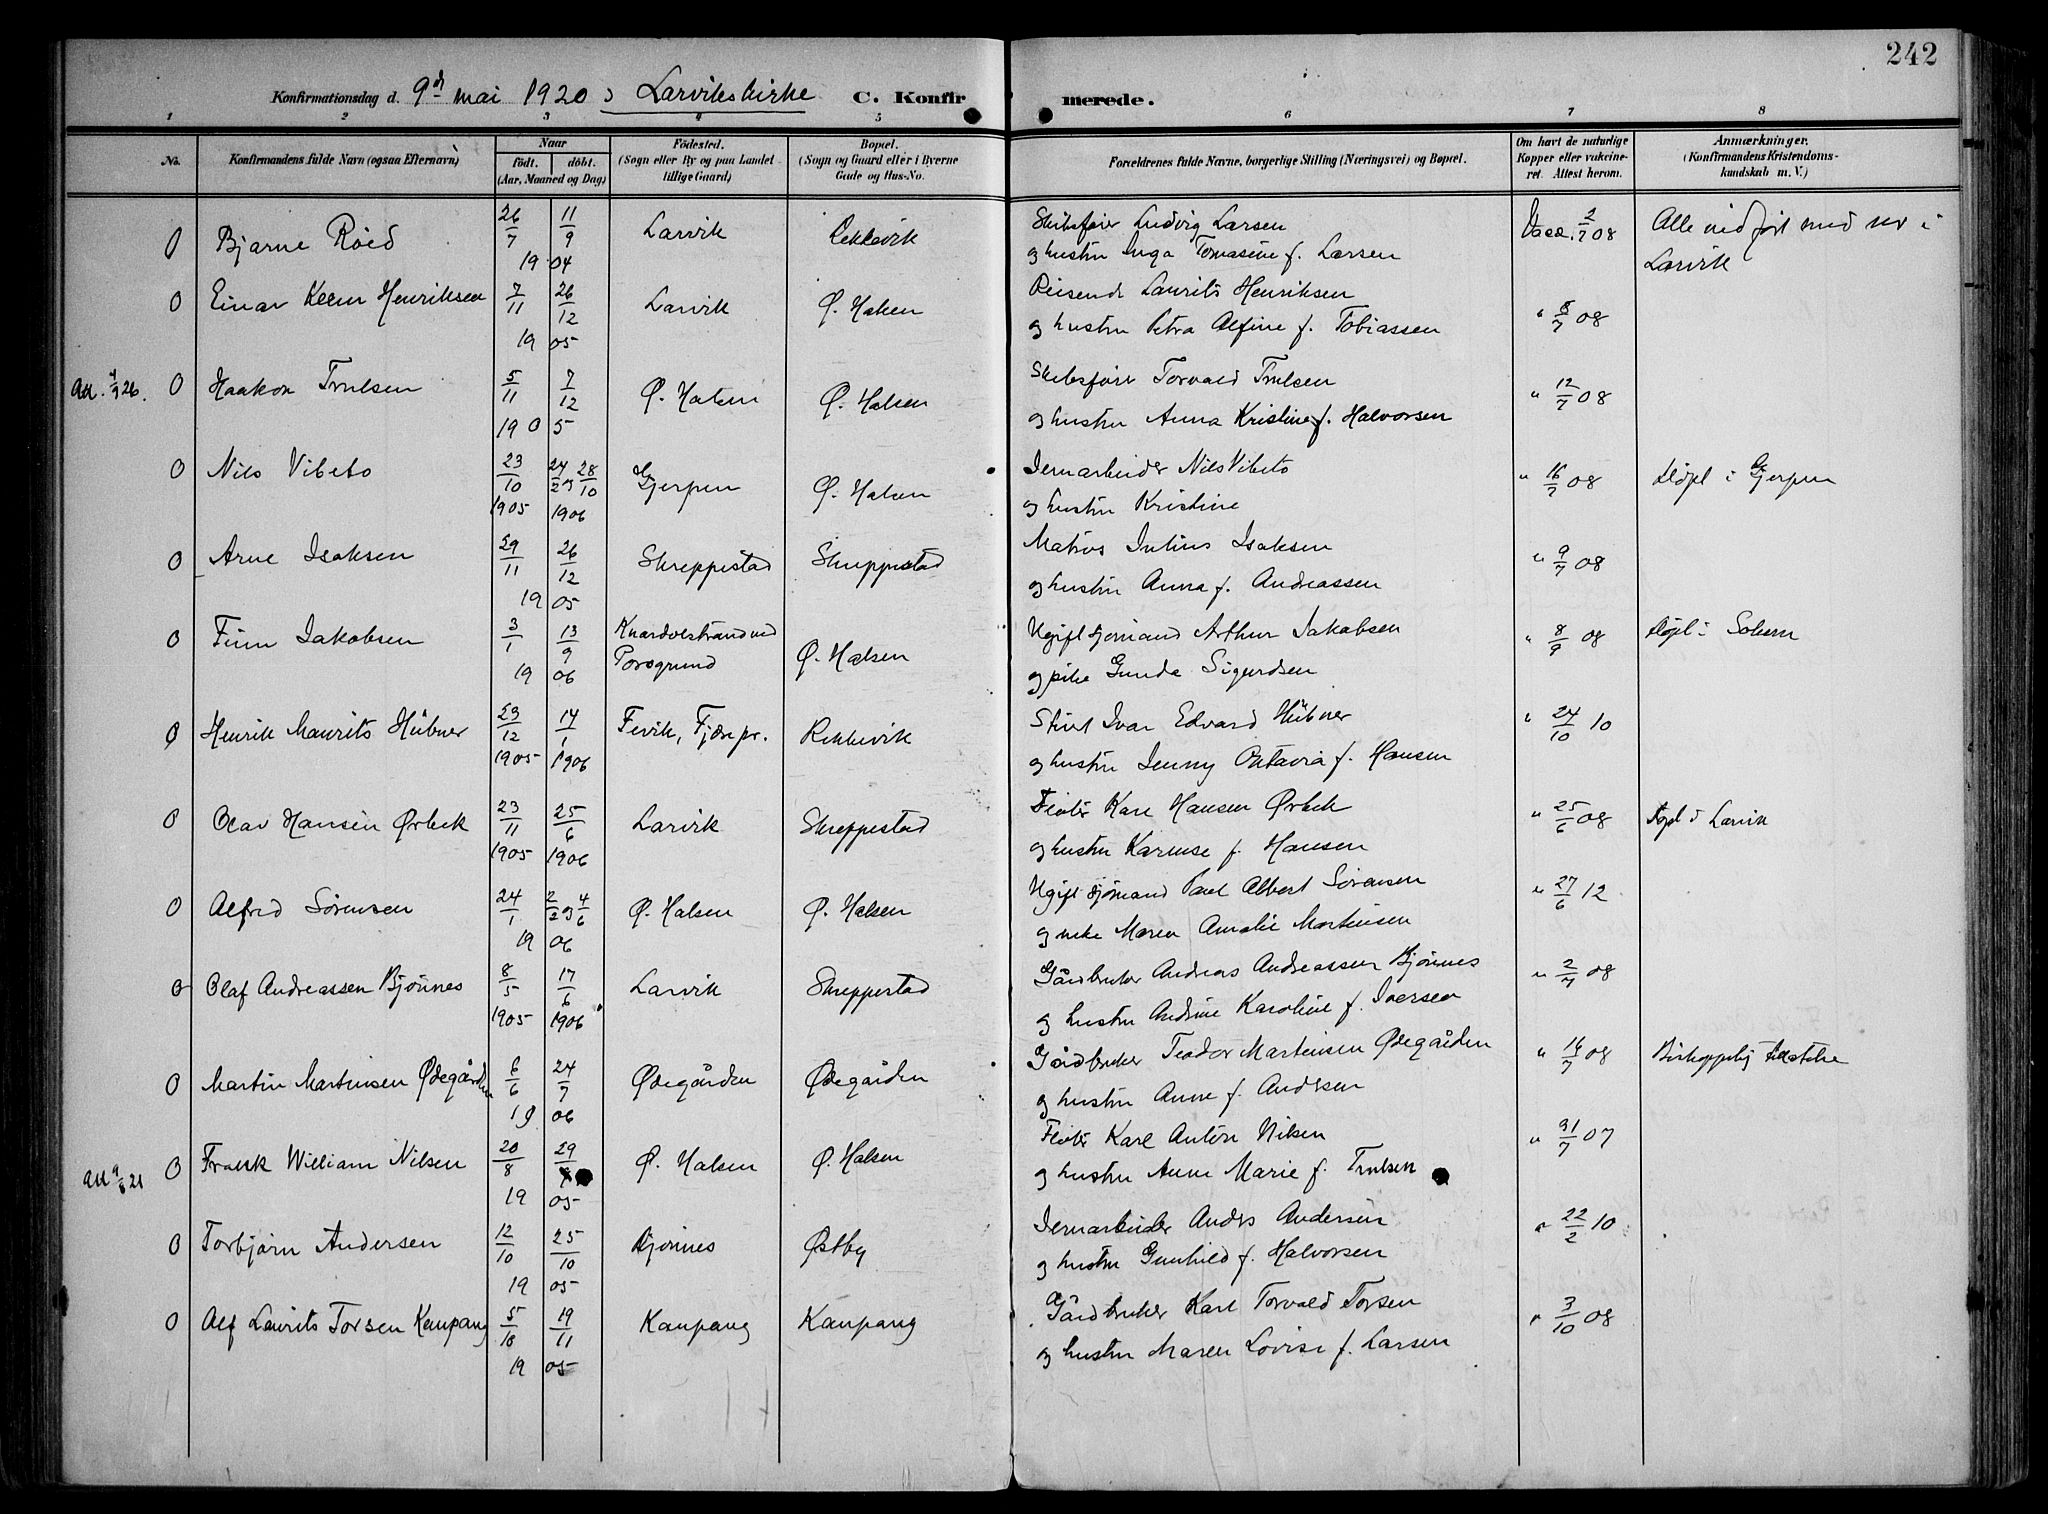 242
Konfirmationsdag d. 9d mai 1920 i Larviks kirke C. Konfir merede.
1 2 3 4 5 6 7 8
No. Konfirmandens fulde Navn (ogsaa Efternavn) Naar födt. döbt. (Aar, Maaned og Dag) Födested. (Sogn eller By og paa Landet tillige Gaard) Bopæl. (Sogn og Gaard eller i Byerne Gade og Hus-No. Forældrenes fulde Navne, borgerlige Stilling (Næringsvei) og Bopæl. Om havt de naturlige Kopper eller vakcineret. Attest herom. Anmærkninger. (Konfirmandens Kristendomskundskab m. V.)
0 Bjarne Röed 26/7 11/9 1904 Larvik Rekkevik Skibsfører Ludvig Larsen Vacc. 2/7 08 Alle indført med nr i
og hustru Inga Tomasine f. Larsen Larvik
0 Einar Keem Henriksen 7/11 26/12 1905 Larvik Ø. Halsen Reisende Laurits Henriksen " 8/7 08
og hustru Petra Alfine f. Tobiassen
Att. 4/9 26. 0 Haakon Trulsen 5/11 7/12 1905 Ø. Halsen Ø. Halsen Skibsfører Torvald Trulsen " 12/7 08
og hustru Anna Kristine f. Halvorsen
0 Nils Vibeto 23/10 1905 24/2 og 28/10 1906 Gjerpen Ø. Halsen Jernarbeider Nils Vibeto " 16/7 08 Døpt i Gjerpen
og hustru Kristine
0 Arne Isaksen 29/11 26/12 1905 Skreppestad Skreppestad Matros Julius Isaksen " 9/7 08
og hustru Anna f. Andreassen
0 Finn Jakobsen 3/1 13/9 1906 Knardalstrand ved Porsgrund Ø. Halsen Ugift sjømand Arthur Jakobsen " 8/9 08 Døpt i Solum
og pike Gunda Sigurdsen
0 Henrik Maurits Hübner 23/12 1905 14/1 1906 Fevik, Fjære pr. Rekkevik Skiret Ivar Edvard Hübner " 24/10 10
og hustru Jenny Oktavia f. Hansen
0 Olav Hansen Ørbek 23/11 1905 25/6 1906 Larvik Skreppestad Fløter Karl Hansen Ørbek " 25/6 08 Døpt i Larvik
og hustru Karense f. Hansen
0 Alfred Sørensen 24/1 2/2 og 4/6 1906 Ø. Halsen Ø. Halsen Ugift sjømand Paul Albert Sørensen " 27/6 12
og enke Maren Amalie Martinsen
0 Olaf Andreassen Bjønnes 8/5 1905 17/6 1906 Larvik Skreppestad Gårdbruker Andreas Andreassen Bjønnes " 2/7 08
og hustru Andrine Karoline f. Iversen
0 Martin Martinsen Ødegården 6/6 24/7 1906 Ødegården Ødegården Gårdbruker Teodor Martinsen Ødegården " 16/7 08 Biskoppelig tillatelse
og hustru Anne f. Andersen
Att 9/8 21 0 Frank William Nilsen 20/8 29/ 1905 Ø. Halsen Ø. Halsen Fløter Karl Anton Nilsen " 31/7 07
og hustru Anne Marie f. Trulsen
0 Torbjørn Andersen 12/10 25/10 1905 Bjønnes Østby Jernarbeider Anders Andersen " 22/2 10
og hustru Gunhild f. Halvorsen
0 Alf Laurits Torsen Kaupang 5/10 19/11 1905 Kaupang Kaupang Gårdbruker Karl Torvald Torsen " 3/10 08
og hustru Maren Lovise f. Larsen